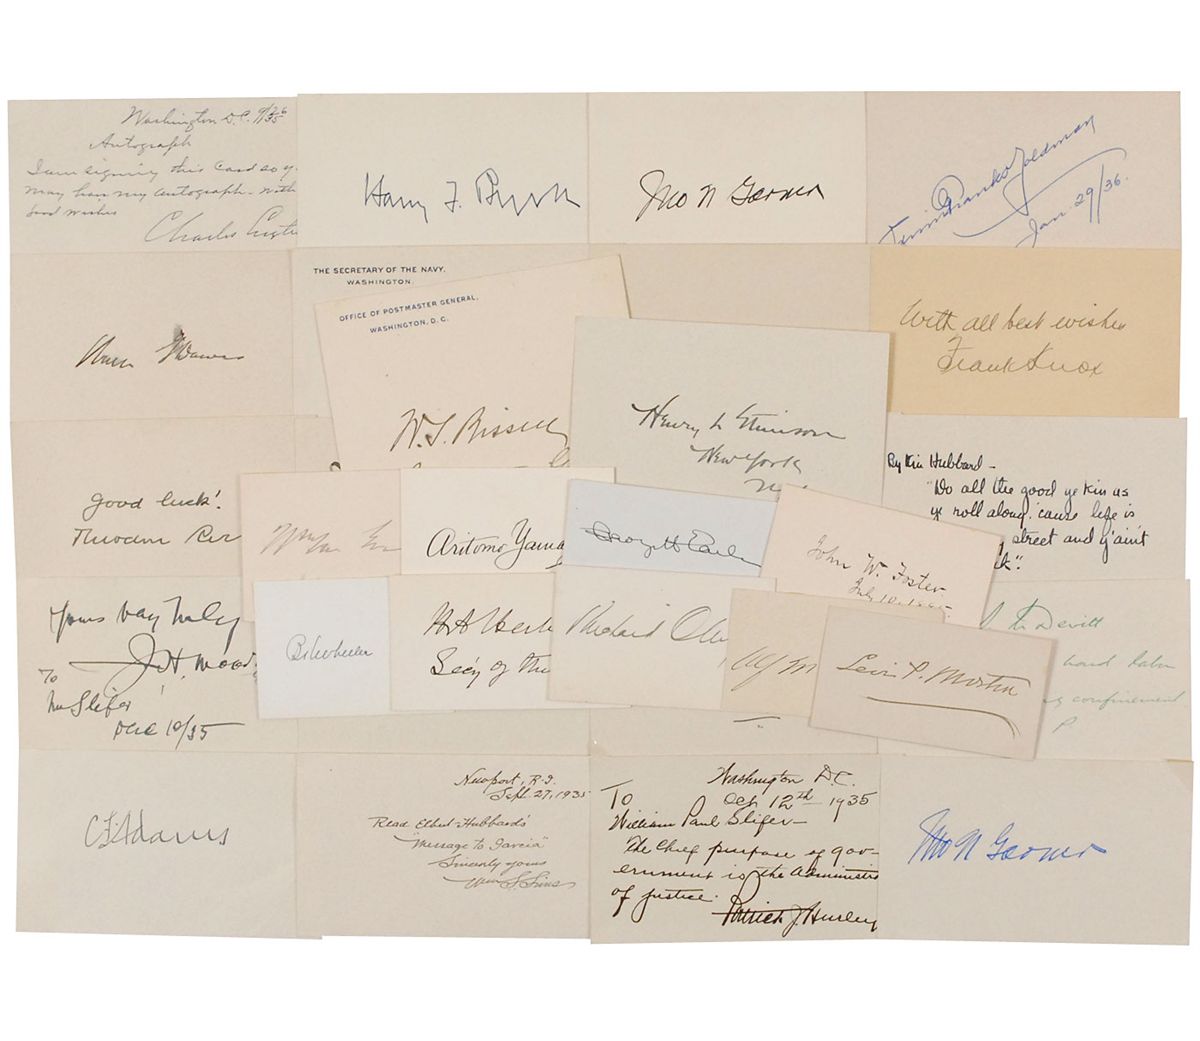 Washington D.C. 9/26/35
Autograph
I am signing this card so y
may have my autograph - with
good wishes
Charles Curtis
Harry F. Byrd
Jno N Garner
Jan. 29/36.
THE SECRETARY OF THE NAVY.
WASHINGTON.
OFFICE OF POSTMASTER GENERAL,
WASHINGTON, D. C.
W. S. Bissell
With all best wishes
Frank Knox
Henry L Stimson
New York
By Kin Hubbard -
"Do all the good ye kin as
ye roll along, 'cause life is
street and y'ain't
k".
Good luck!
Aritomo Yamag
John W. Foster
July 10, 1895
Yours very truly
J. H. Wood
To
Mr Slifer
Dec 10/35
B. K. Wheeler
H A Herb
Sec'y of the
Richard Oln
Alf M
Levi P. Morton
hard labor
confinement
P.
C F Adams
Newport, R.I.
Sept. 27, 1935
Read Elbert Hubbard's
"Message to Garcia"
Sincerely yours
Wm S. Sims
Washington D.C.
Oct 12th 1935
To
William Paul Slifer -
The chief purpose of gov-
ernment is the administra
of justice.
Patrick J. Hurley
Jno N Garner